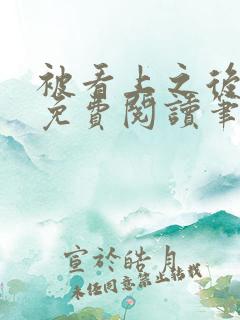 被看上之後
免費閱讀筆
宣於皓月
未經同意禁止轉載